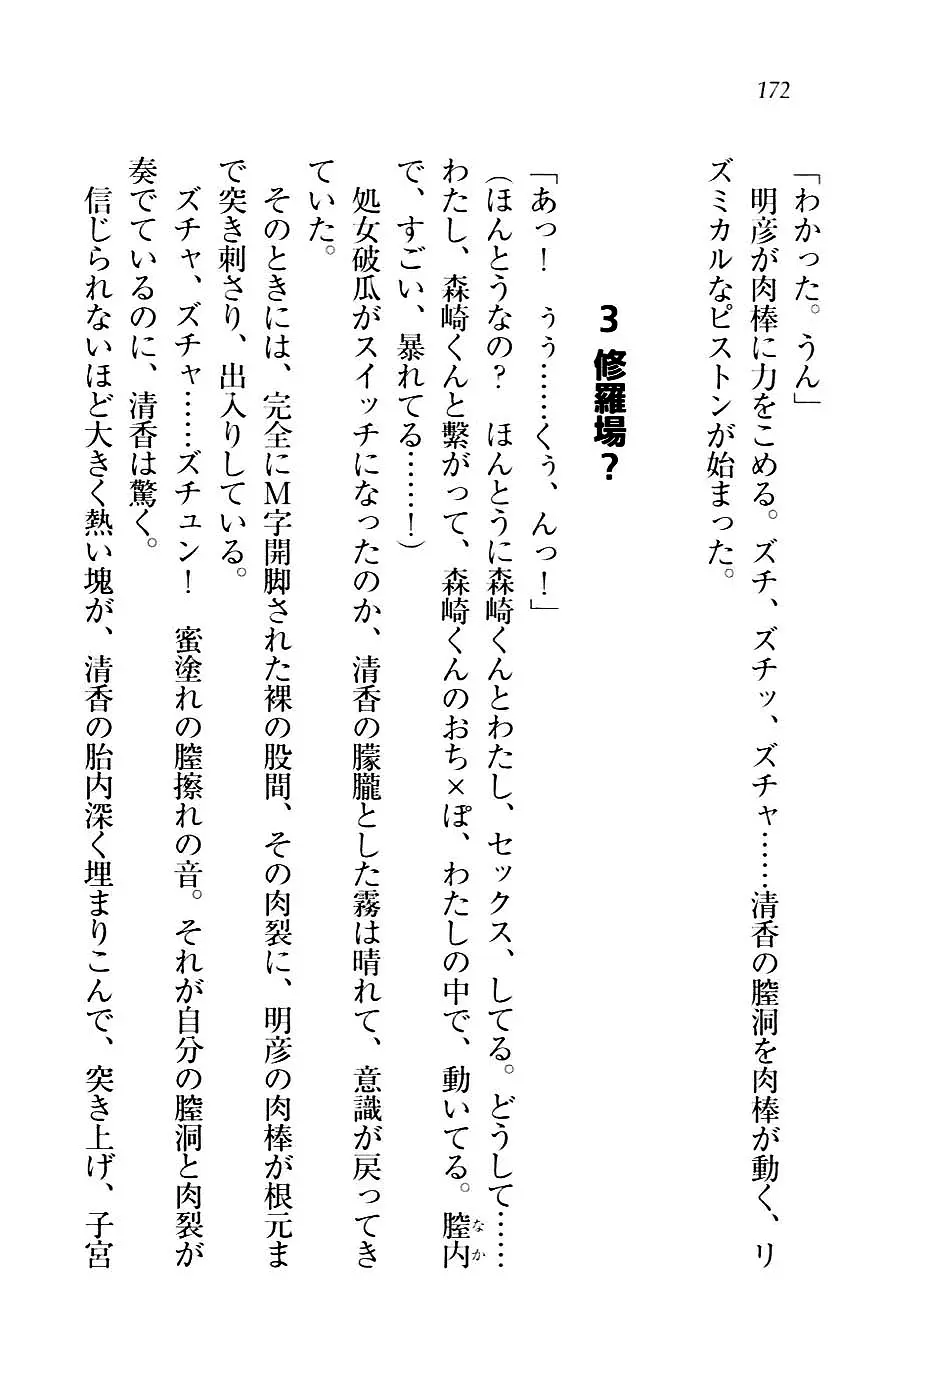 172
「わかった。うん」
　明彦が肉棒に力をこめる。ズチ、ズチッ、ズチャ……清香の膣洞を肉棒が動く、リ
ズミカルなピストンが始まった。
3　修羅場？
「あっ！　ぅぅ……くぅ、んっ！」
（ほんとうなの？　ほんとうに森崎くんとわたし、セックス、してる。どうして……
わたし、森崎くんと繋がって、森崎くんのおち×ぽ、わたしの中で、動いてる。膣内
なか
で、すごい、暴れてる……！）
　処女破瓜がスイッチになったのか、清香の朦朧とした霧は晴れて、意識が戻ってき
ていた。
　そのときには、完全にＭ字開脚された裸の股間、その肉裂に、明彦の肉棒が根元ま
で突き刺さり、出入りしている。
　ズチャ、ズチャ……ズチュン！　蜜塗れの膣擦れの音。それが自分の膣洞と肉裂が
奏でているのに、清香は驚く。
　信じられないほど大きく熱い塊が、清香の胎内深く埋まりこんで、突き上げ、子宮